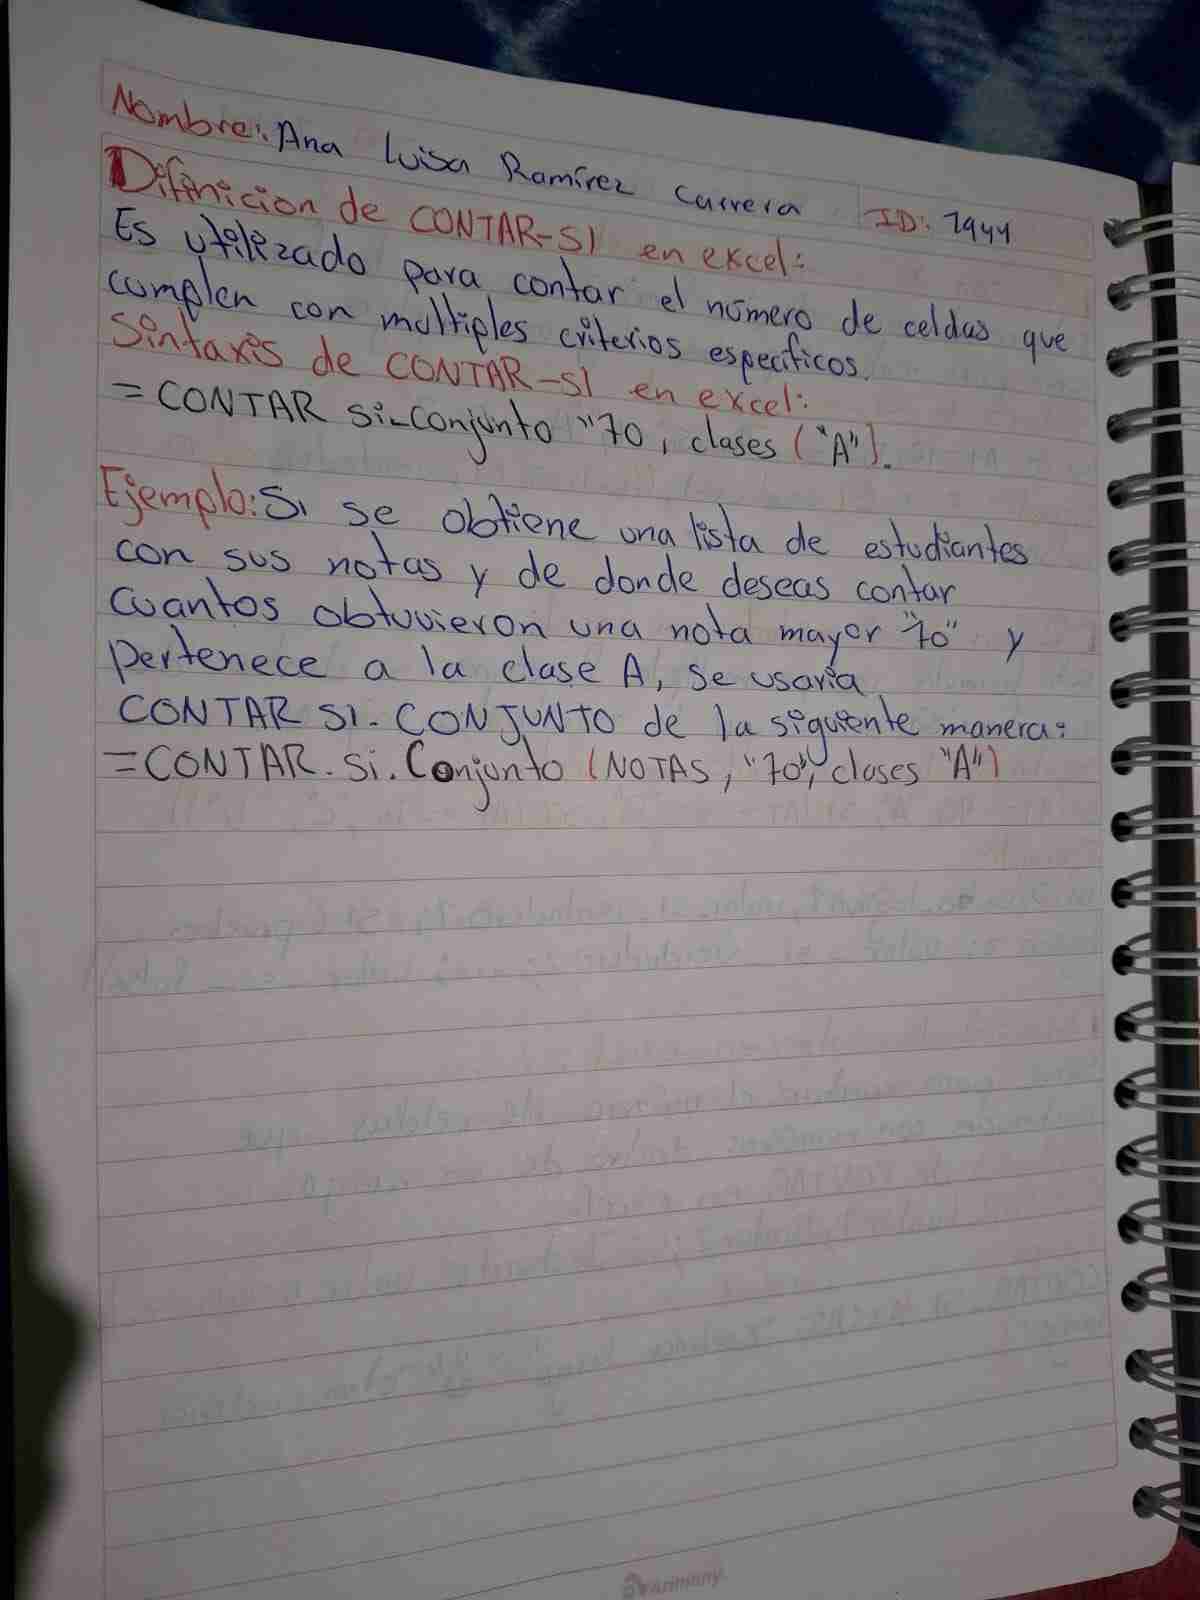 Nombre: Ana Luisa Ramírez Carrera ID: 7944
Difinicion de CONTAR-SI en excel:
Es utilizado para contar el número de celdas que
cumplen con multiples criterios específicos.
Sintaxis de CONTAR-SI en excel:
=CONTAR si-conjunto "70, clases ("A").
Ejemplo: Si se obtiene una lista de estudiantes
con sus notas y de donde deseas contar
cuantos obtuvieron una nota mayor "70" y
pertenece a la clase A, se usaria
CONTAR SI. CONJUNTO de la siguiente manera:
=CONTAR. si. Conjunto (NOTAS, "70", clases "A")
arimany